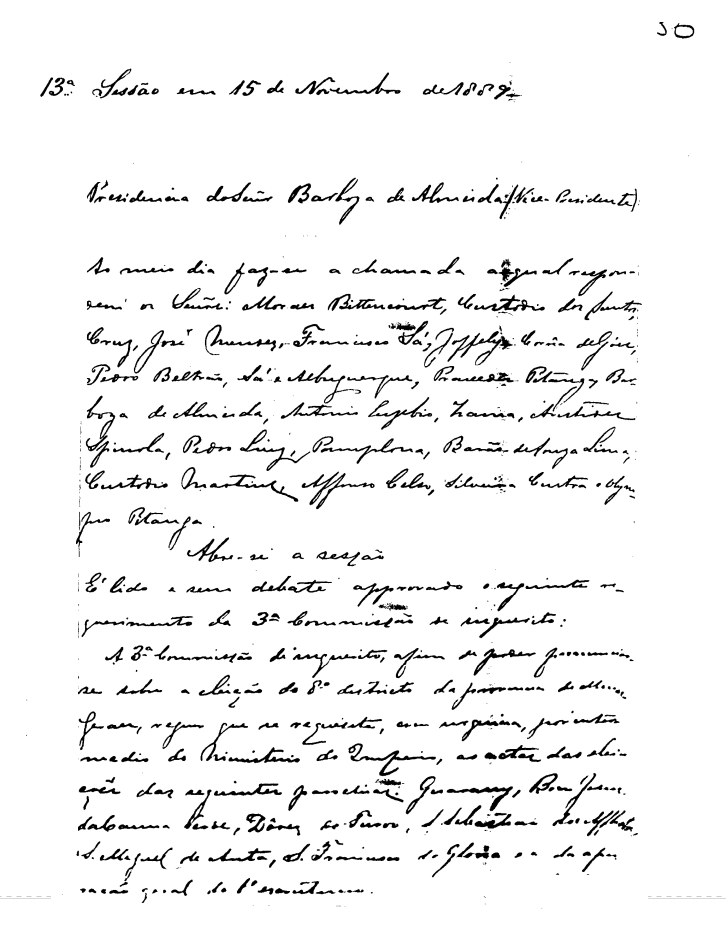 50
13ª Sessão em 15 de Novembro de 1889
Presidencia do Senr Barboza de Almeida (Vice-Presidente)
Ao meio dia faz-se a chamada a qual respon-
dem os Senrs: Moraes Bittencourt, Custodio dos Santos,
Cruz, José Menezes, Francisco Sá, Joffely, de
Pedro Beltrão, Sá e Albuquerque, Pitanga, Bar-
boza de Almeida, Antonio Euzebio, Zama, Aristides
Spinola, Pedro Luiz, Pamplona, Barão de Souza Lima,
Custodio Martins, Affonso Celso, Silveira e Olym-
pio Pitanga.
Abre-se a sessão
É lido e sem debate approvado o seguinte re-
querimento da 3ª Commissão de inquerito:
A 3ª Commissão d'inquerito, afim de poder pronunciar-
se sobre a eleição do 8º districto da provincia de Minas
Geraes, requer que se requisite, com urgencia, por inter-
medio do Ministerio do Imperio, as actas das elei-
ções das seguintes parochias: Guarany, Bom Jesus
da Canna Verde, Dôres do Turvo, S. Sebastião dos Afflictos,
S. Miguel de Anta, S. Francisco do Gloria e a da apu-
ração geral do 1º escrutinio.